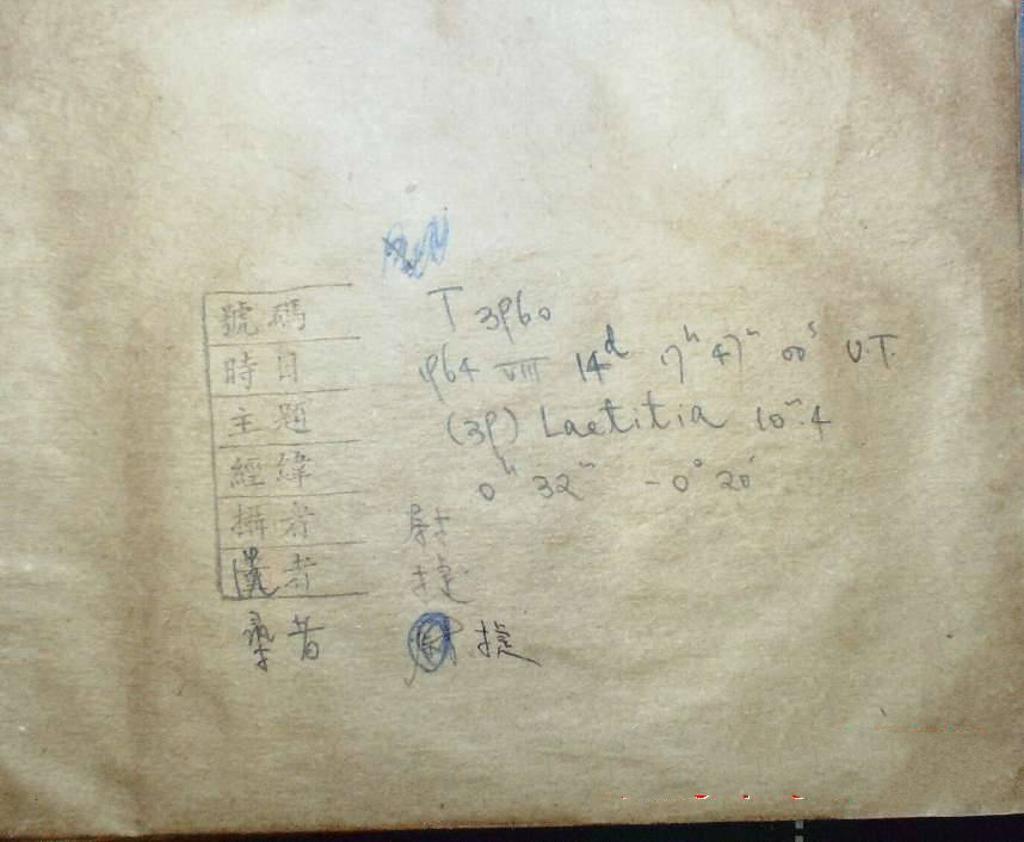 號碼 T 3960
時日 1964 VIII 14d 17h 47m 00s U.T.
主題 (39) Laetitia 10m.4
經緯 0h 32m -0° 20'
攝者 尉
者 捷
尋者 捷